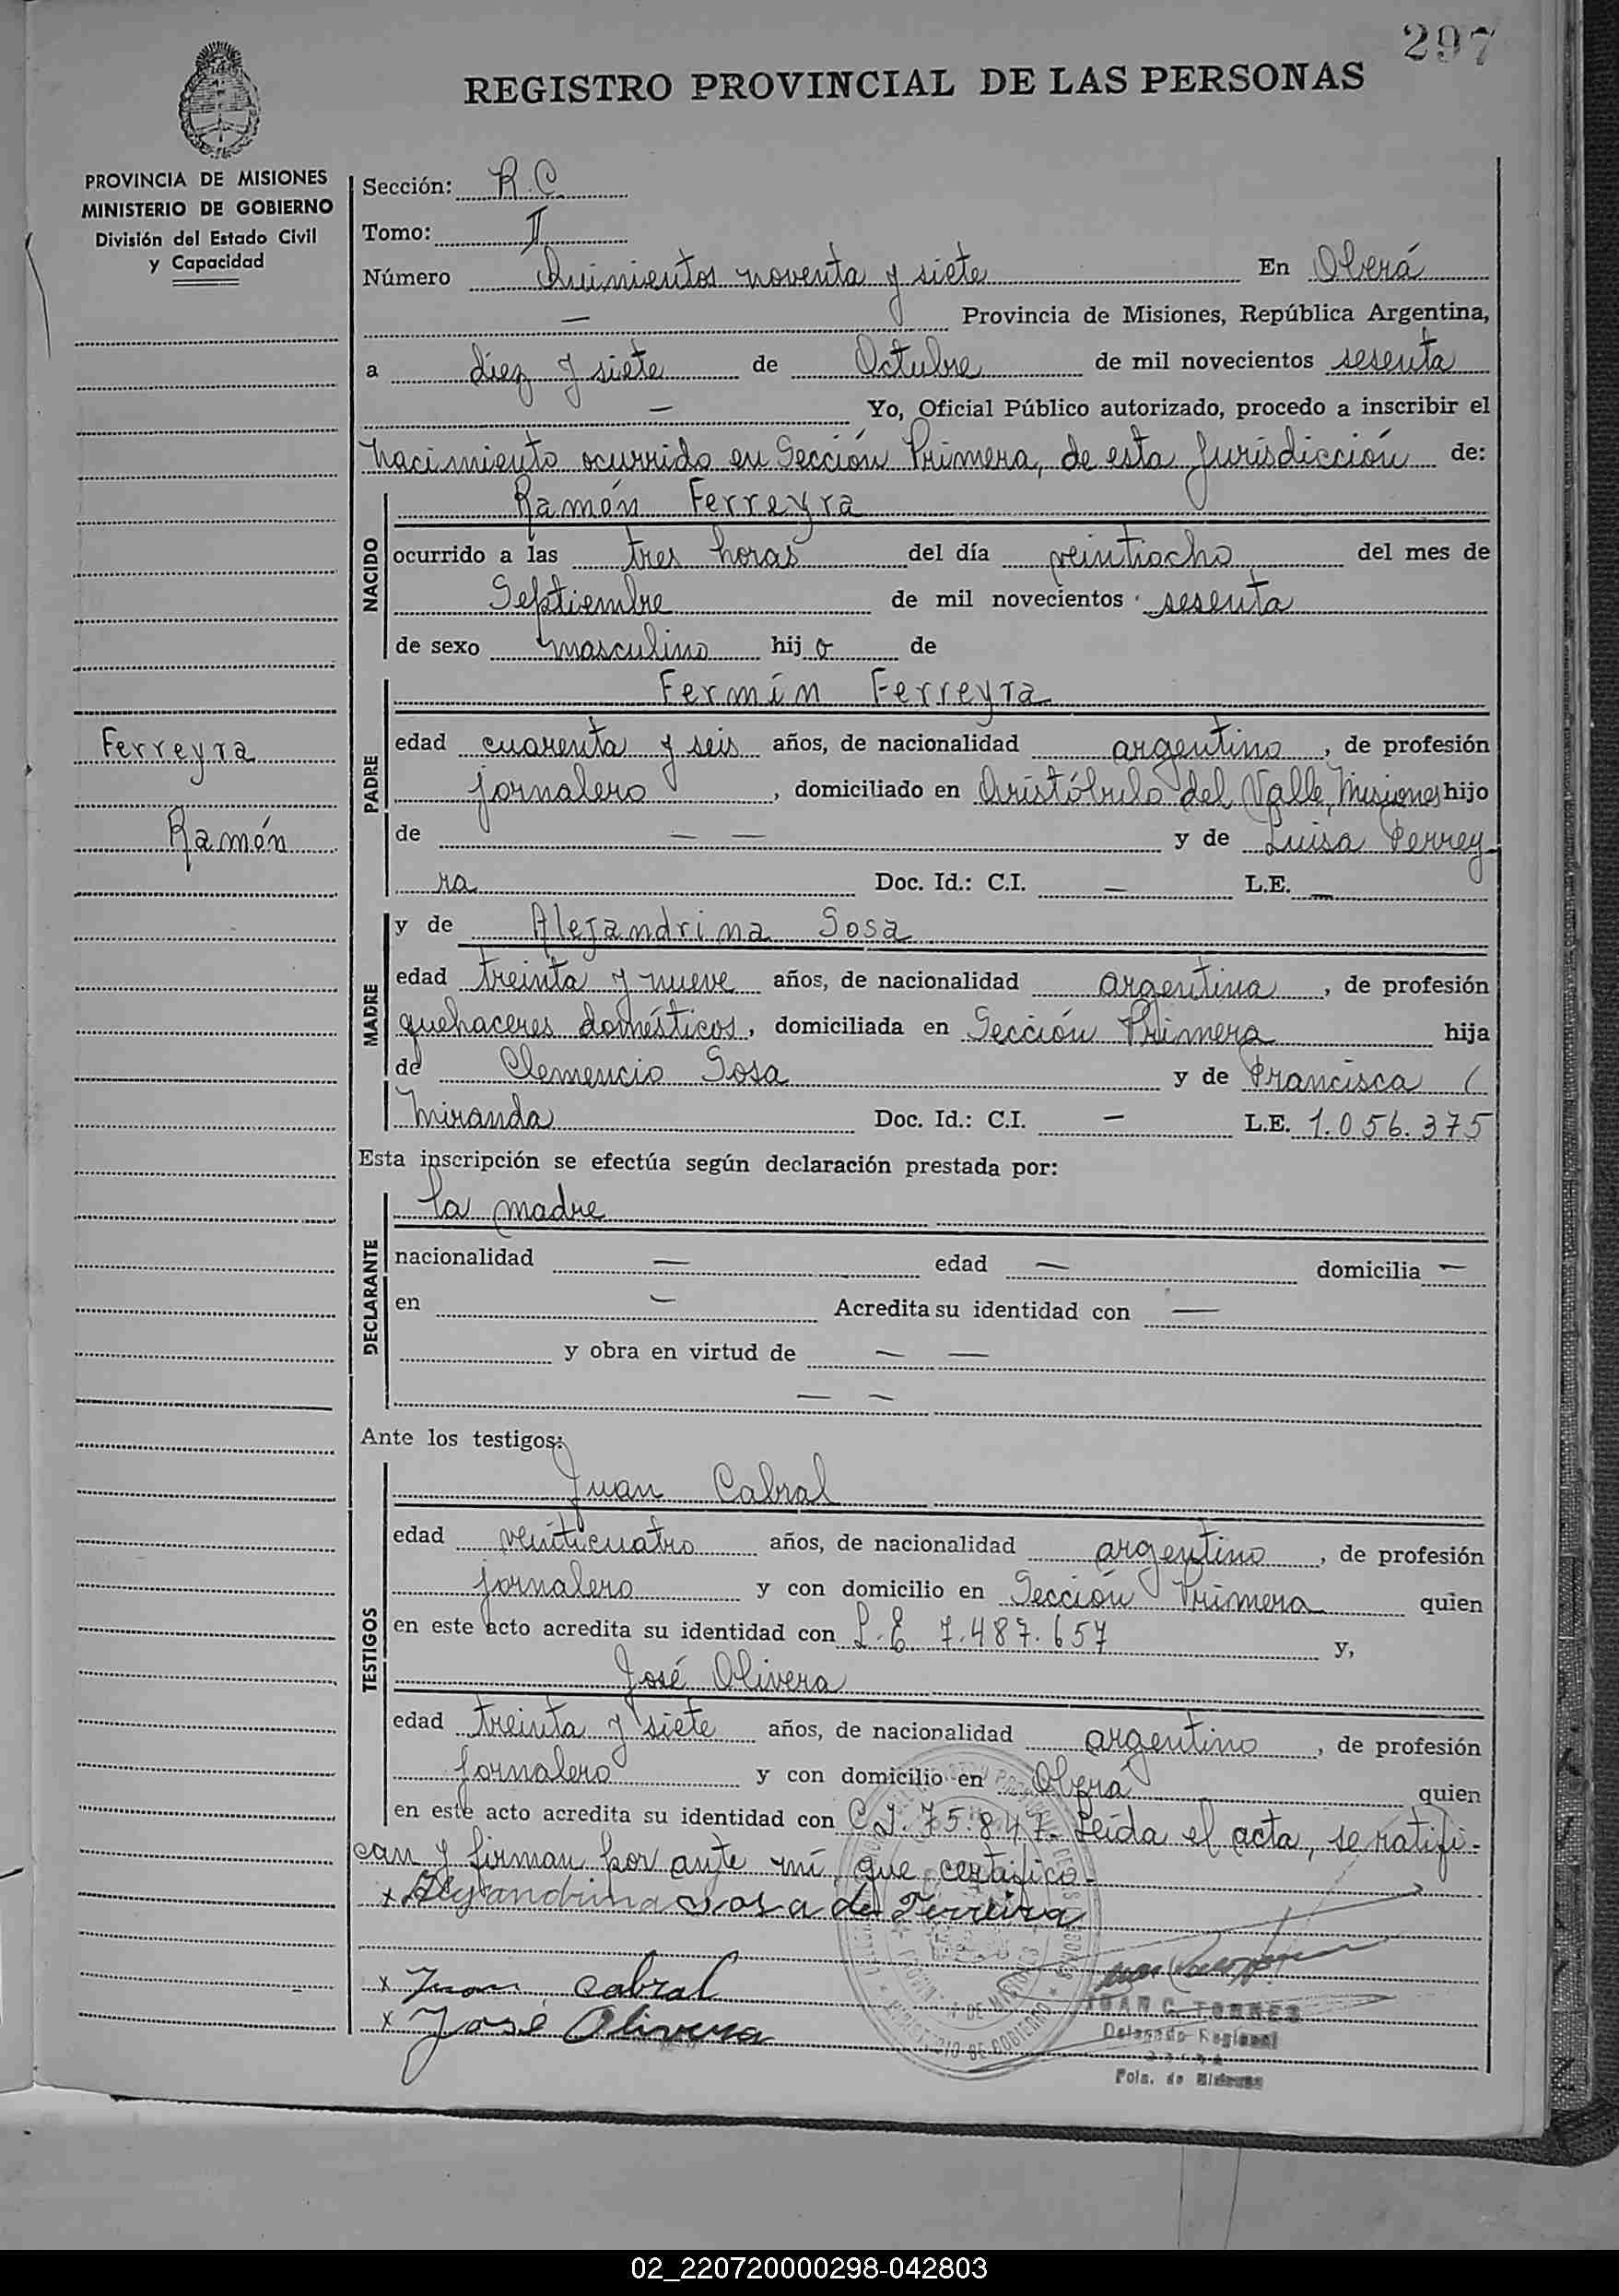 297
REGISTRO PROVINCIAL DE LAS PERSONAS
PROVINCIA DE MISIONES
MINISTERIO DE GOBIERNO
División del Estado Civil
y Capacidad
Sección: R.C.
Tomo: II
Número Quinientos noventa y siete En Oberá
— Provincia de Misiones, República Argentina,
a diez y siete de Octubre de mil novecientos sesenta
— Yo, Oficial Público autorizado, procedo a inscribir el
nacimiento ocurrido en Sección Primera, de esta Jurisdicción de:
NACIDO
Ramón Ferreyra
ocurrido a las tres horas del día veintiocho del mes de
Septiembre de mil novecientos sesenta
de sexo masculino hijo de
PADRE
Fermín Ferreyra
Ferreyra
edad cuarenta y seis años, de nacionalidad argentino, de profesión
jornalero, domiciliado en Aristóbulo del Valle, Misiones hijo
Ramón
de — — y de Luisa Ferrey
ra Doc. Id.: C.I. — L.E. —
MADRE
y de Alejandrina Sosa
edad treinta y nueve años, de nacionalidad argentina, de profesión
quehaceres domésticos, domiciliada en Sección Primera hija
de Clemencio Sosa y de Francisca
Miranda Doc. Id.: C.I. — L.E. 1.056.375
Esta inscripción se efectúa según declaración prestada por:
DECLARANTE
la madre
nacionalidad — edad — domicilia —
en — Acredita su identidad con —
y obra en virtud de — —
— —
Ante los testigos:
TESTIGOS
Juan Cabral
edad veinticuatro años, de nacionalidad argentino, de profesión
jornalero y con domicilio en Sección Primera quien
en este acto acredita su identidad con L.E 7.487.657 y,
José Olivera
edad treinta y siete años, de nacionalidad argentino, de profesión
jornalero y con domicilio en Oberá quien
en este acto acredita su identidad con C.I. 75.847. Leída el acta, se ratifi-
can y firman por ante mí, que certifico.-
x Alejandrina Sosa de Ferreira
x Juan Cabral
x José Olivera
JUAN C. TORRES
Delegado Regional
Pcia. de Misiones
02_220720000298-042803